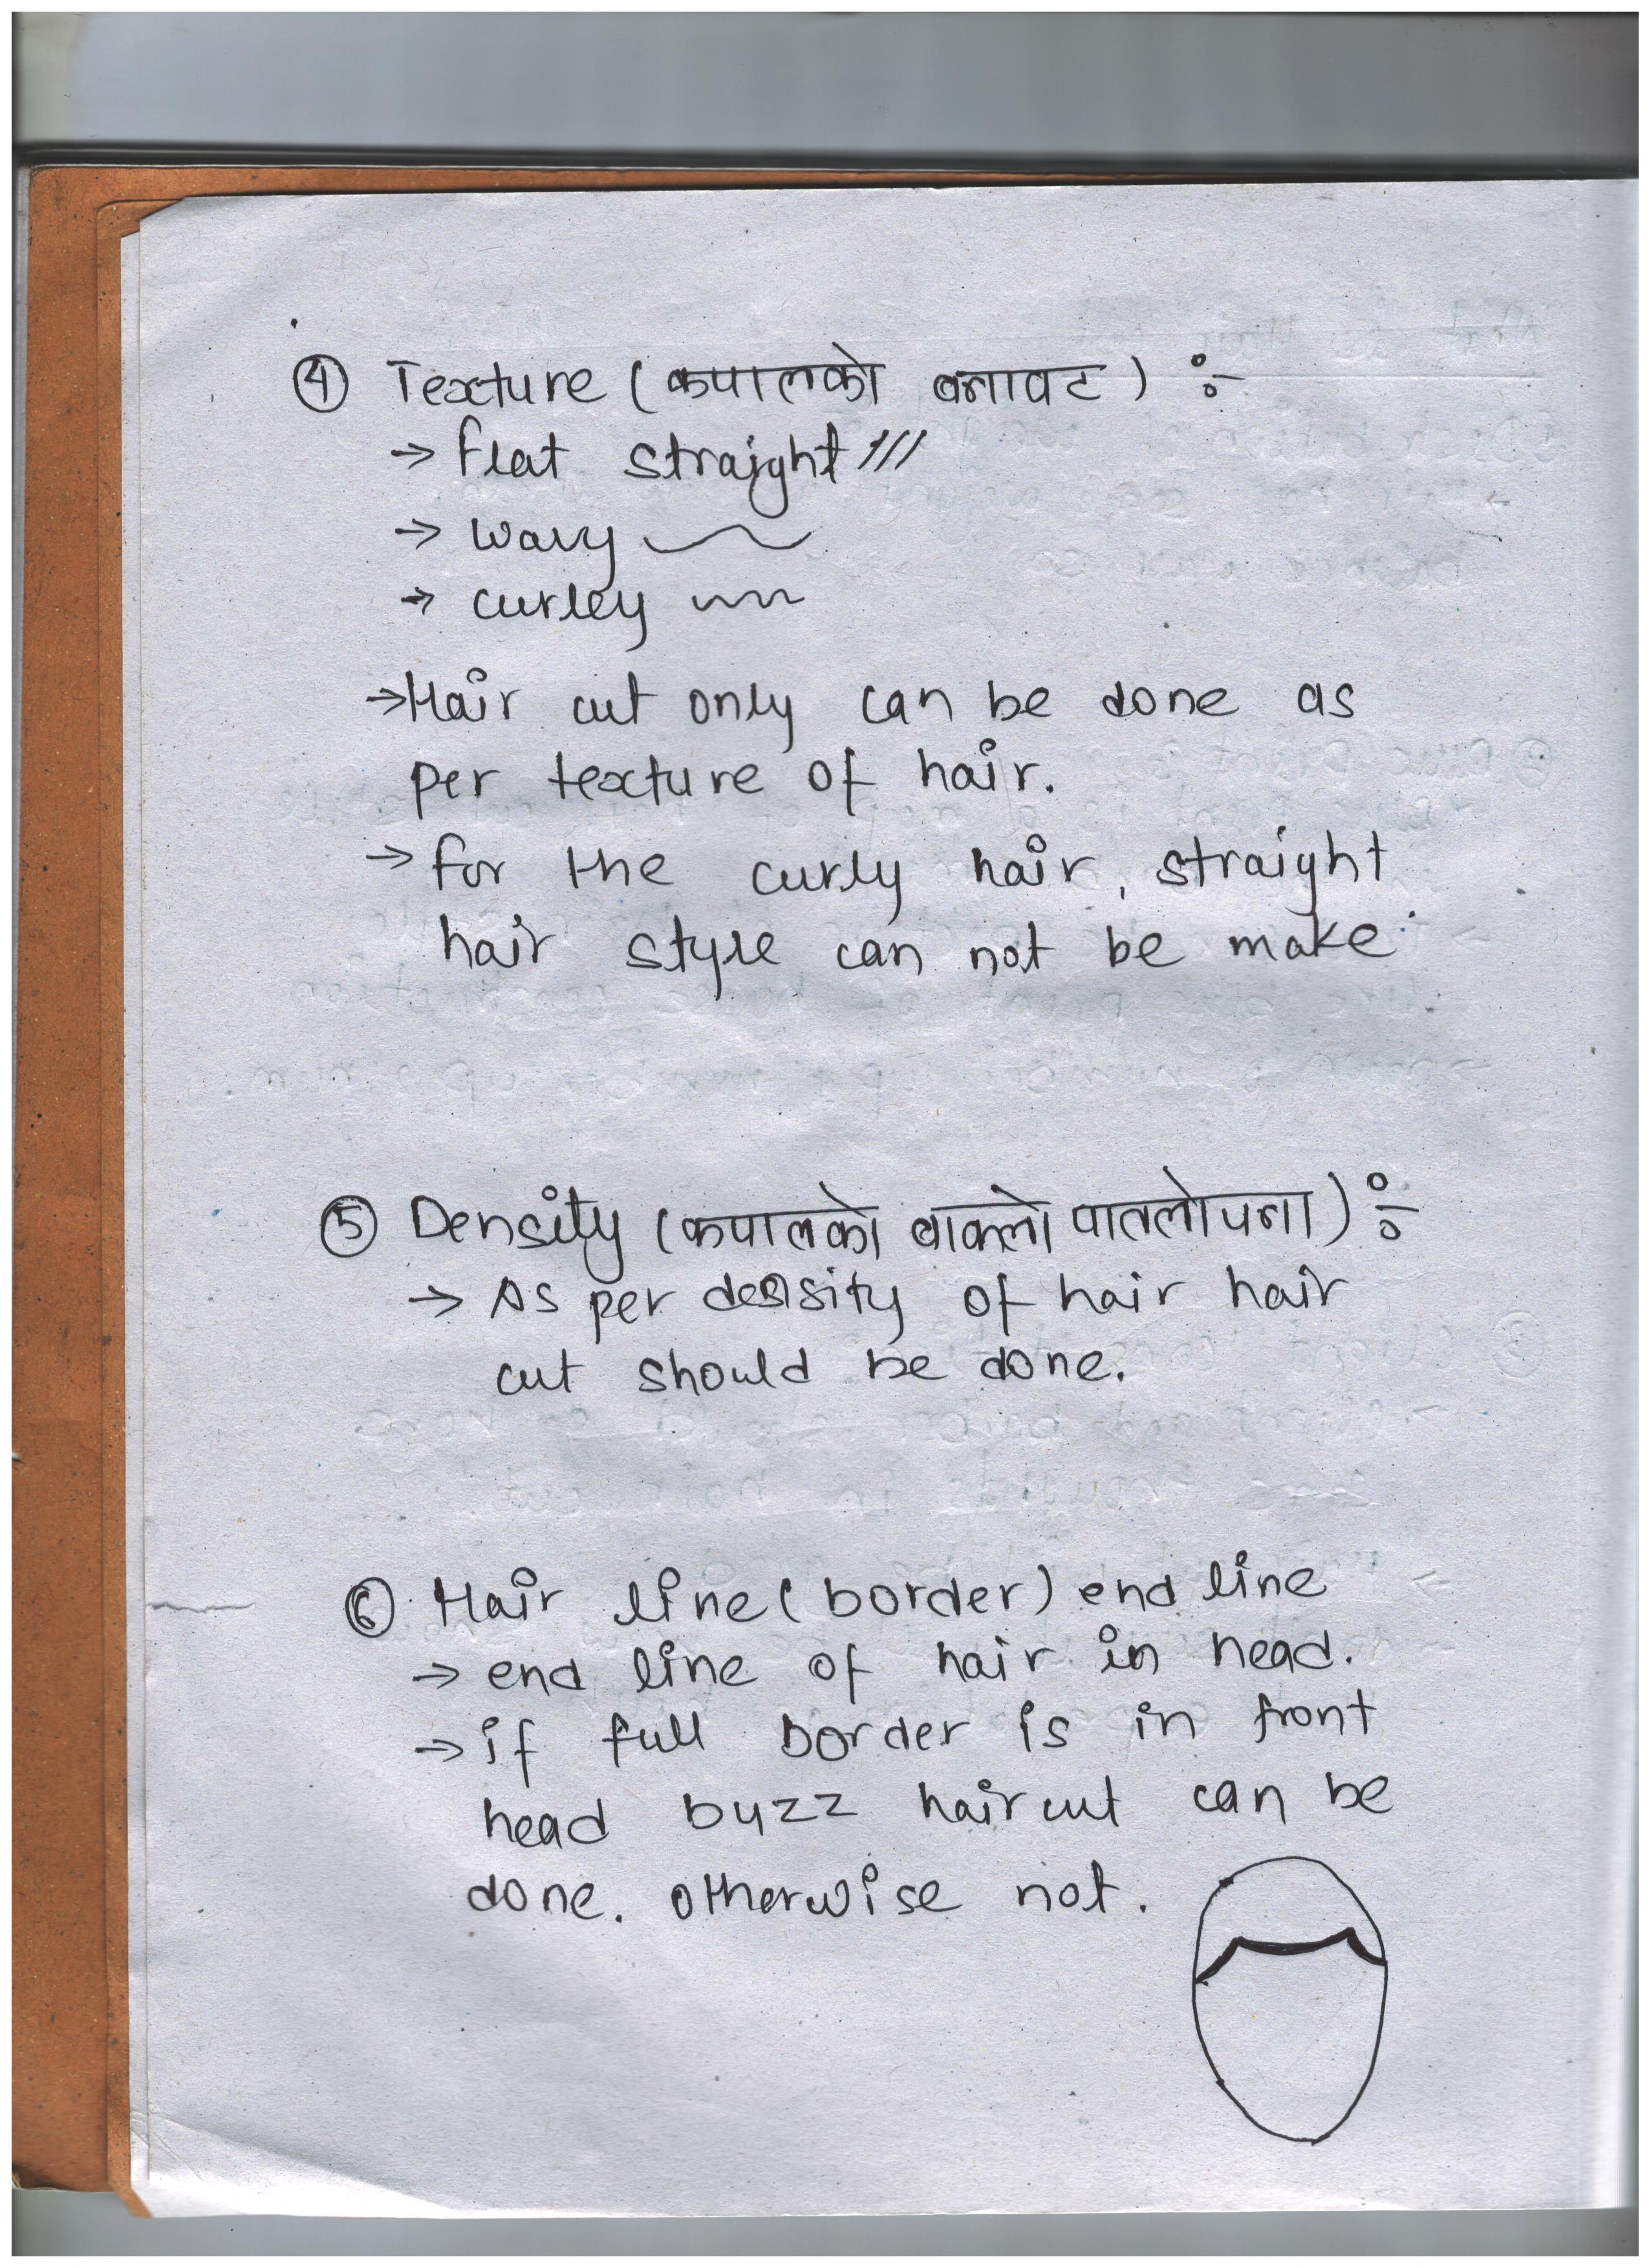 ④ Texture (कपालको बनावट) :-
→ flat straight ///
→ wavy
→ curley
→ Hair cut only can be done as
per texture of hair.
→ for the curly hair, straight
hair style can not be make.
⑤ Density (कपालको बाक्लो पातलोपना) :-
→ As per density of hair hair
cut should be done.
⑥ Hair line (border) end line
→ end line of hair in head.
→ if full border is in front
head buzz haircut can be
done. otherwise not.